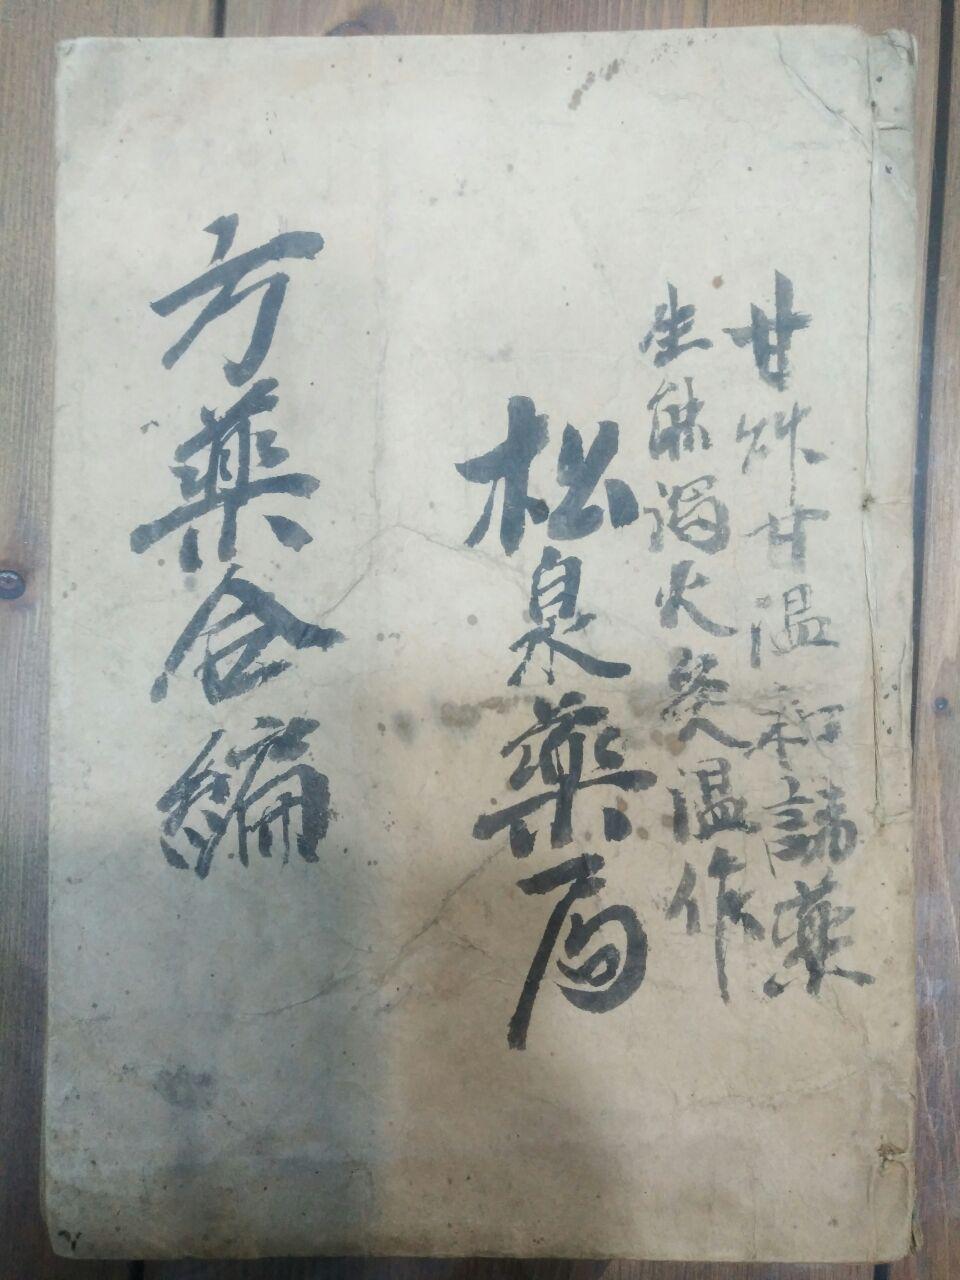 甘艸甘温和諸藥
生能瀉火炙温作
松泉藥局
方藥合編